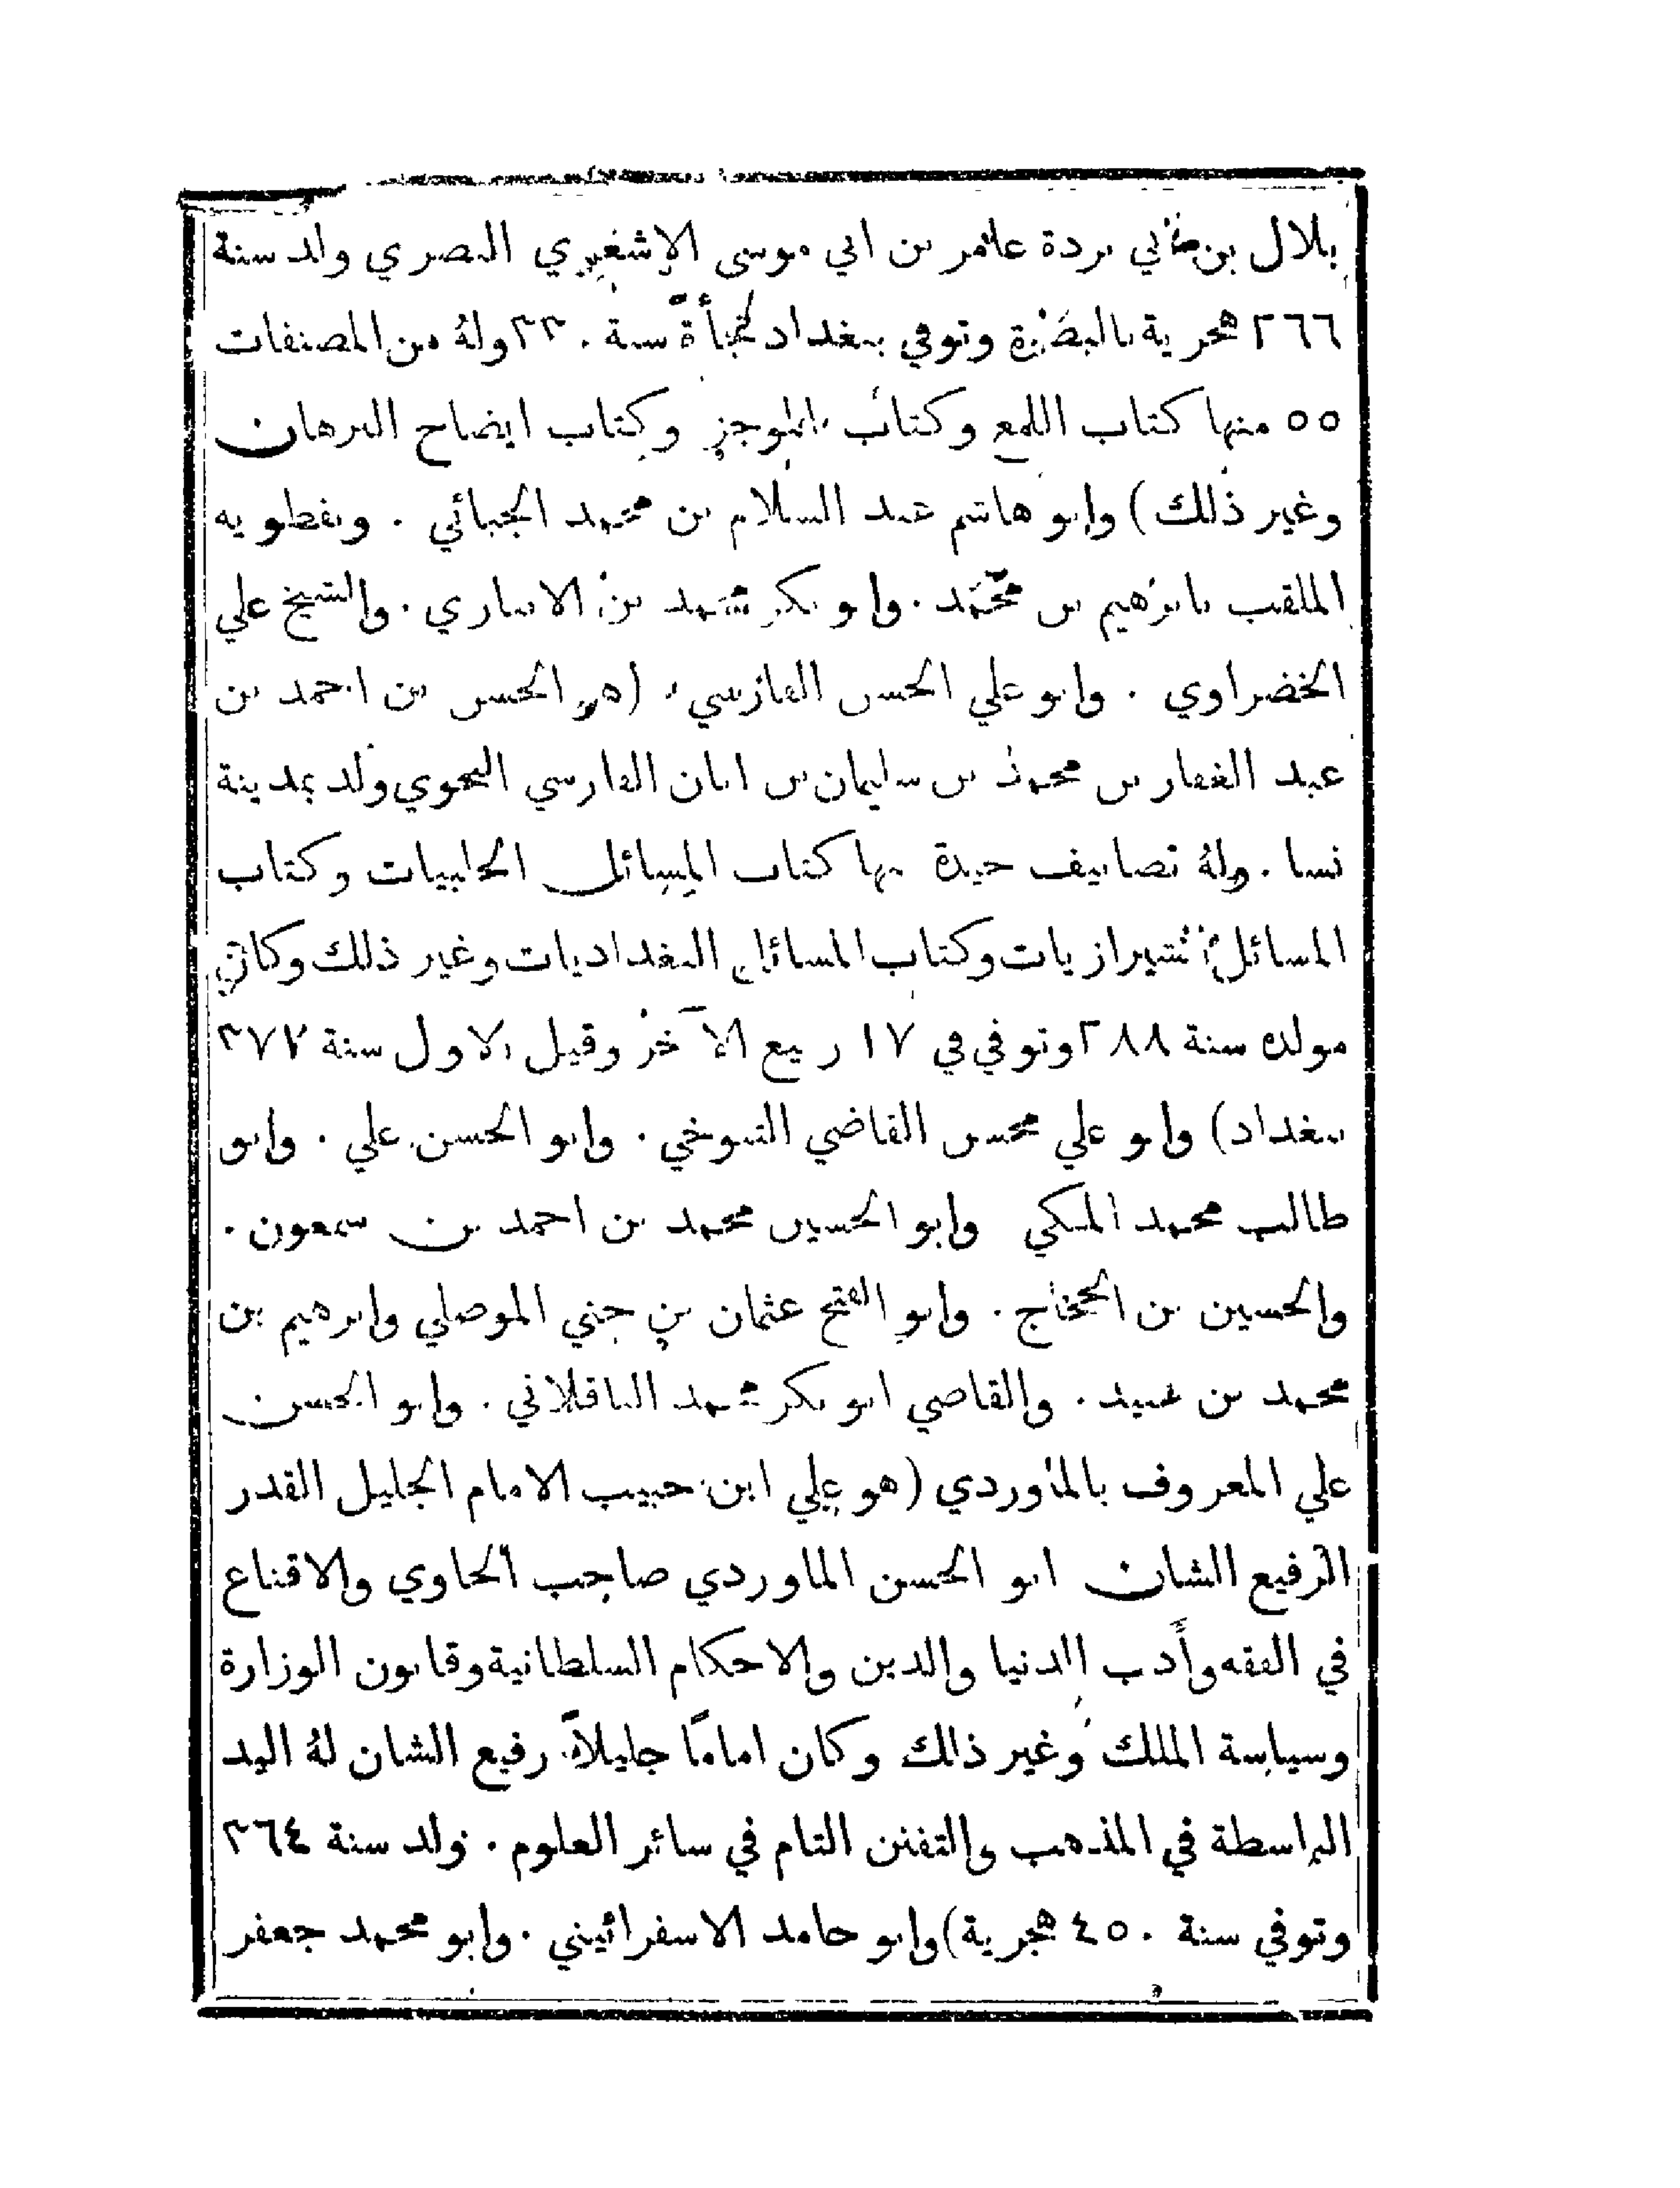 بلال بن ابي بردة عامر بن ابي موسى الاشعري البصري ولد سنة
٢٦٦ هجرية بالبصرة وتوفي ببغداد فجأة سنة ٣٣٠ وله من المصنفات
٥٥ منها كتاب اللمع وكتاب الموجز وكتاب ايضاح البرهان
وغير ذلك) وابو هاشم عبد السلام بن محمد الجبائي . ونفطويه
الملقب بابرهيم بن محمد . وابو بكر محمد بن الانباري . والشيخ علي
الخضراوي . وابو علي الحسن الفارسي (هو الحسن بن احمد بن
عبد الغفار بن محمد بن سليمان بن ابان الفارسي النحوي ولد بمدينة
نسا . وله تصانيف جيدة منها كتاب المسائل الحلبيات وكتاب
المسائل الشيرازيات وكتاب المسائل البغداديات وغير ذلك وكان
مولده سنة ٢٨٨ وتوفي في ١٧ ربيع الآخر وقيل الاول سنة ٣٧٧
ببغداد) وابو علي محسن القاضي التنوخي . وابو الحسن علي . وابو
طالب محمد المكي وابو الحسين محمد بن احمد بن سمعون .
والحسين بن الحجاج . وابو الفتح عثمان بن جني الموصلي وابرهيم بن
محمد بن عبيد . والقاضي ابو بكر محمد الباقلاني . وابو الحسن
علي المعروف بالماوردي (هو علي ابن حبيب الامام الجليل القدر
الرفيع الشان ابو الحسن الماوردي صاحب الحاوي والاقناع
في الفقه وأدب الدنيا والدين والاحكام السلطانية وقانون الوزارة
وسياسة الملك وغير ذلك وكان اماما جليلاً رفيع الشان لهُ اليد
الباسطة في المذهب والتفنن التام في سائر العلوم . ولد سنة ٣٦٤
وتوفي سنة ٤٥٠ هجرية) وابو حامد الاسفرائيني . وابو محمد جعفر